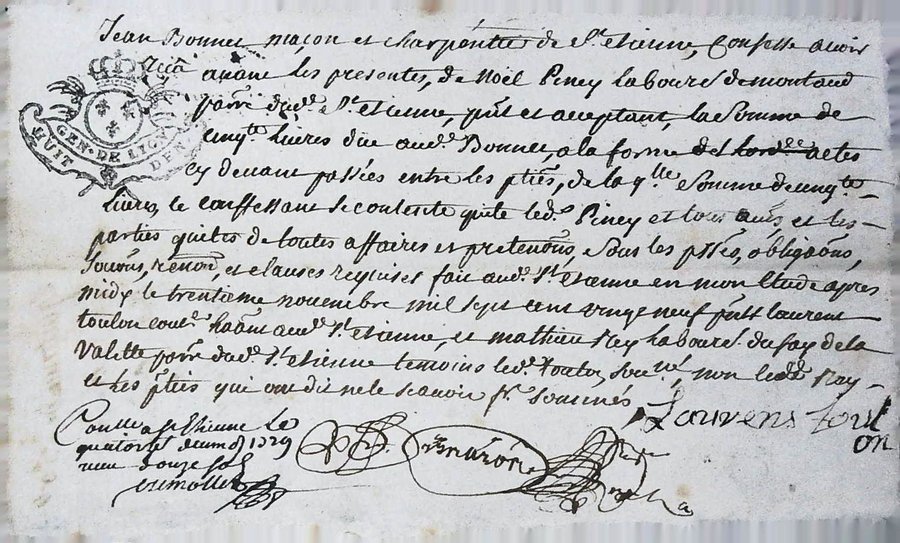 Jean Bonnet maçon et charpentier de St. etienne, Confesse avoir
avant les presentes, de Noël Piney laboureˢ de montaud
parre dudᵗ St. etienne, pnt et acceptant, la Somme de
cinqte livres due audᵗ Bonnet, a la forme des actes
cy devant passées entre les pties, de laqlle Somme de cinqte
livres, le confessant se contente quite ledᵗ Piney et tous aues, et les
parties quites de toutes affaires et pretenõns, sous les ptées, obligaõns,
Soumõns, renõn, et clauses requises fait audᵗ St. etienne en mon Etude apres
midy le trentieme novembre mil sept cent vingt neuf pnts laurent
toulon couˢ habnt audᵗ St. etienne, et mathieu Rey laboureˢ du fay de la
valette parre dudᵗ St. etienne temoins ledᵗ toulon soué, non ledᵗ Rey
et les pties qui ont dit ne le scavoir Somméś
GEN · DE LION
HUIT DEN.
Laurens toul
on
a St. etienne le
quatorse 1729
douze Sol